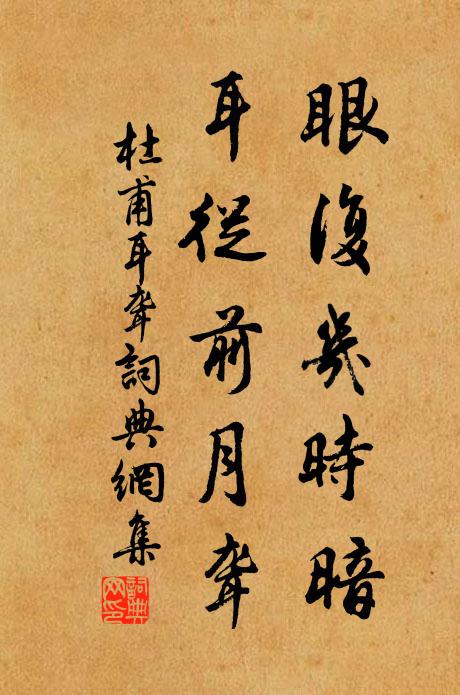 眼復幾時暗
耳從前月聾
杜甫耳聾詞典網集
詞典網印